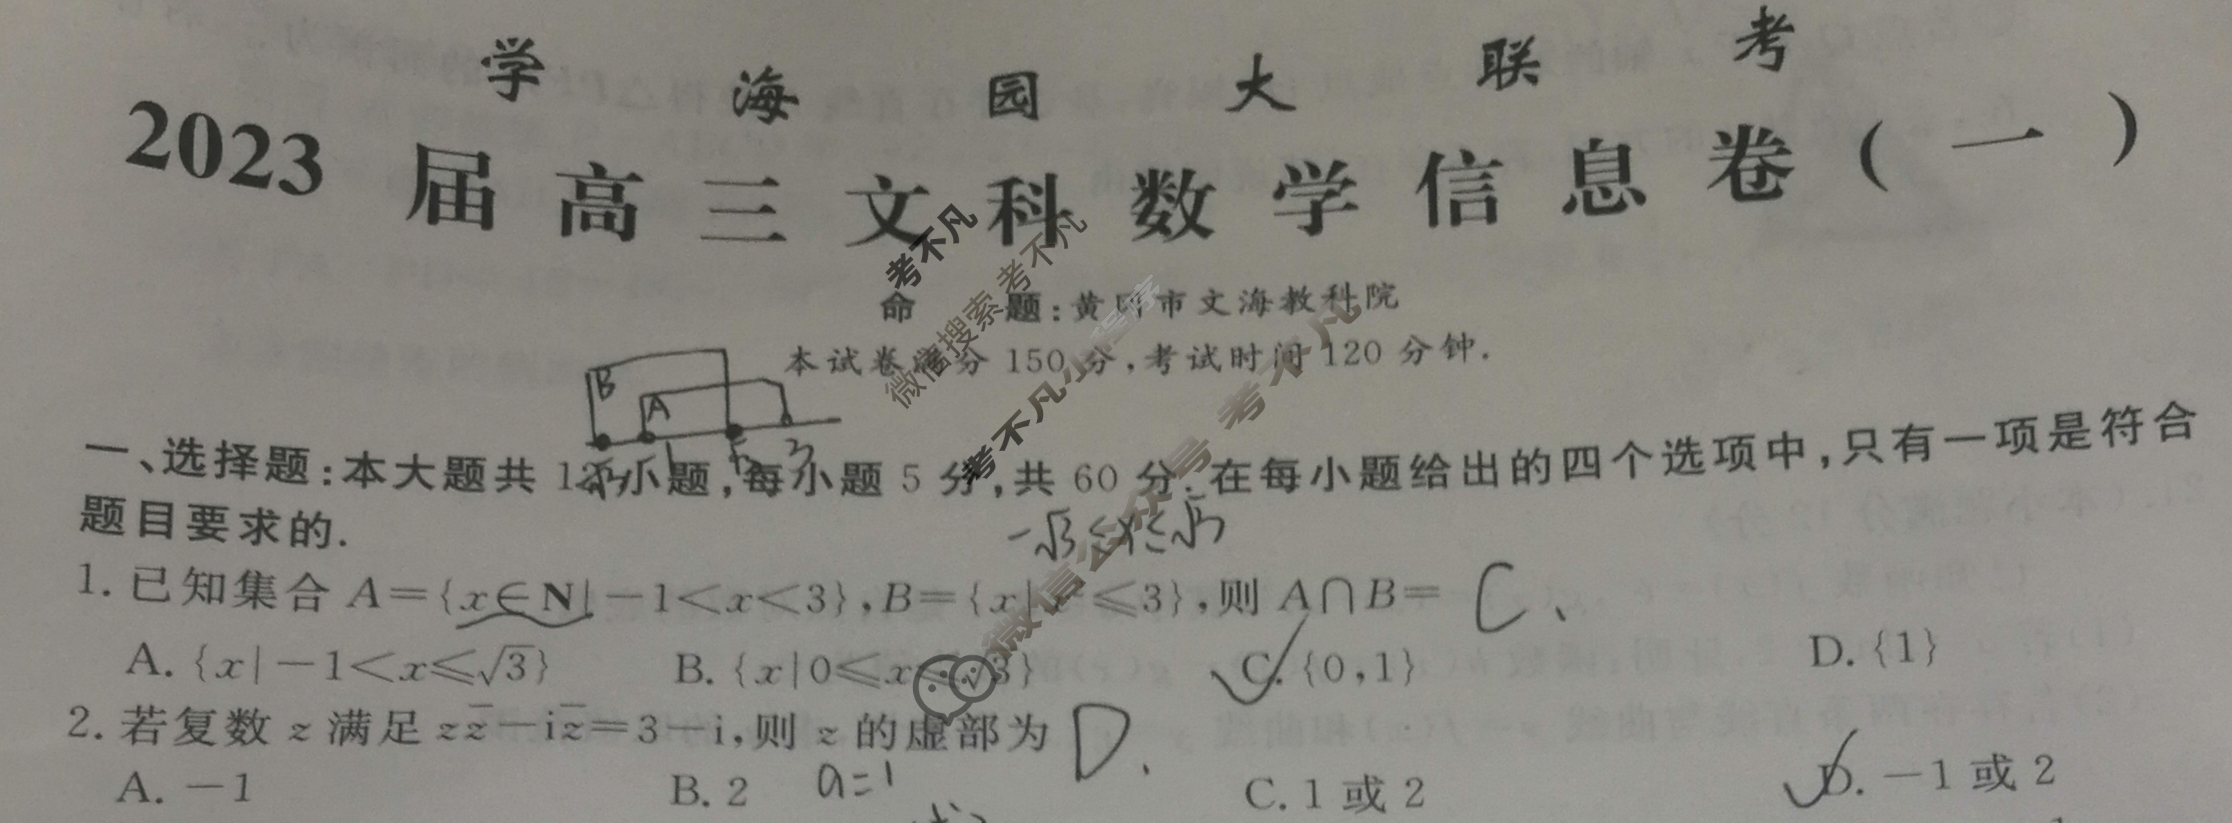 学海园大联考
2023届高三文科数学信息卷(一)
命 题:黄冈市文海教科院
本试卷满分150分,考试时间120分钟.
B
A
一、选择题:本大题共12小题,每小题5分,共60分.在每小题给出的四个选项中,只有一项是符合
题目要求的.
-√3≤x≤√3
1.已知集合A={x∈N|-1<x<3},B={x|x²≤3},则A∩B= C、
A.{x|-1<x≤√3} B.{x|0≤x≤√3} C.{0,1} D.{1}
2.若复数z满足zz̅-iz̅=3-i,则z的虚部为 D.
A.-1 B.2 a=1 C.1或2 D.-1或2
考不凡
微信搜索考不凡
考不凡小程序
微信公众号 考不凡